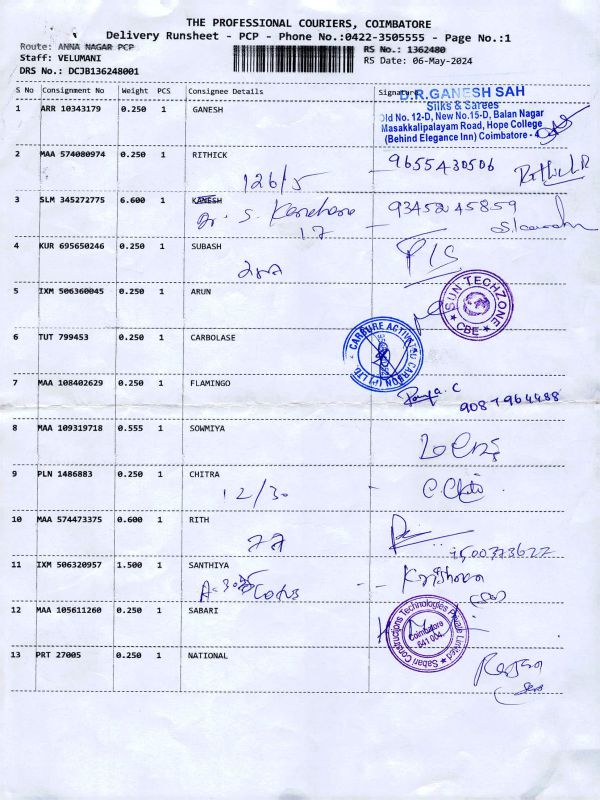 THE PROFESSIONAL COURIERS, COIMBATORE
Delivery Runsheet - PCP - Phone No.:0422-3505555 - Page No.:1
Route: ANNA NAGAR PCP
RS No.: 1362480
Staff: VELUMANI
RS Date: 06-May-2024
DRS No.: DCJB136248001
S No Consignment No Weight PCS Consignee Details Signature
D.R.GANESH SAH
Silks & Sarees
Old No. 12-D, New No.15-D, Balan Nagar
Masakkalipalayam Road, Hope College
(Behind Elegance Inn) Coimbatore - 4
1 ARR 10343179 0.250 1 GANESH
2 MAA 574080974 0.250 1 RITHICK
126/5 - 9655430506
3 SLM 345272775 6.600 1 KANESH
S. Kanchana 9345245859
17
4 KUR 695650246 0.250 1 SUBASH
P/S
5 IXM 506360045 0.250 1 ARUN
SUN TECHZONE
CBE
6 TUT 799453 0.250 1 CARBOLASE
CARBURE ACTIVATAD CARBON (P) LTD
7 MAA 108402629 0.250 1 FLAMINGO
9087964488
8 MAA 109319718 0.555 1 SOWMIYA
9 PLN 1486883 0.250 1 CHITRA
12/30 -
10 MAA 574473375 0.600 1 RITH
77
11 IXM 506320957 1.500 1 SANTHIYA
Krishnan
12 MAA 105611260 0.250 1 SABARI
Sabari Constructions Technologies Private Limited
Coimbatore
641 004
13 PRT 27005 0.250 1 NATIONAL